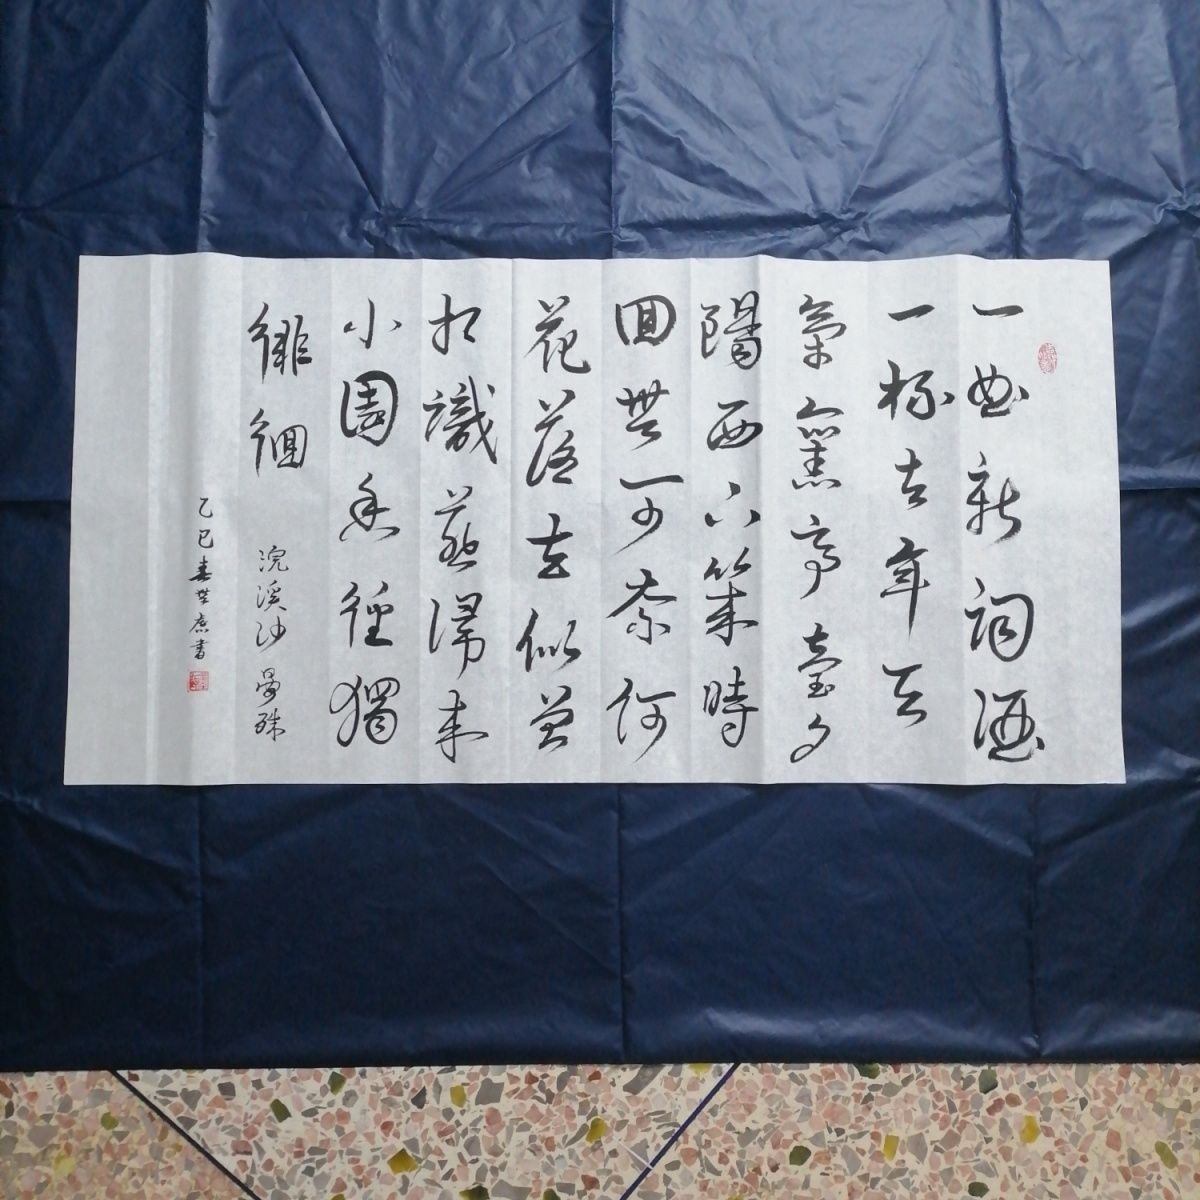 一曲新詞酒
一杯去年天
氣舊亭臺夕
陽西下幾時
回無可奈何
花落去似曾
相識燕歸來
小園香徑獨
徘徊 浣溪沙 晏殊
乙巳春 書